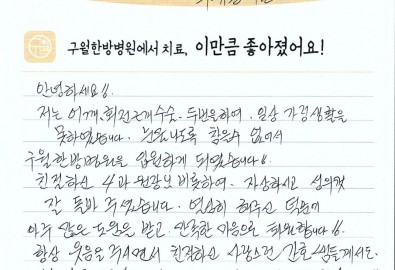 구월한방병원에서 치료, 이만큼 좋아졌어요!
안녕하세요!!
저는 어깨, 회전근개수술, 두번을하여, 일상 가정생활을
못하였습니다. 눈물나도록 참을수 없어서
구월한방병원을 입원하게 되였습니다!!
친절하신 4과 원장님 비롯하여, 자상하시고 성의껏
잘 돌봐 주셨습니다. 열심히 해주신 덕분에
아주 많은 도움을 받고 만족한 마음으로 퇴원합니다!!
항상 웃음을 주시면서 친절하고 사랑스런 간호